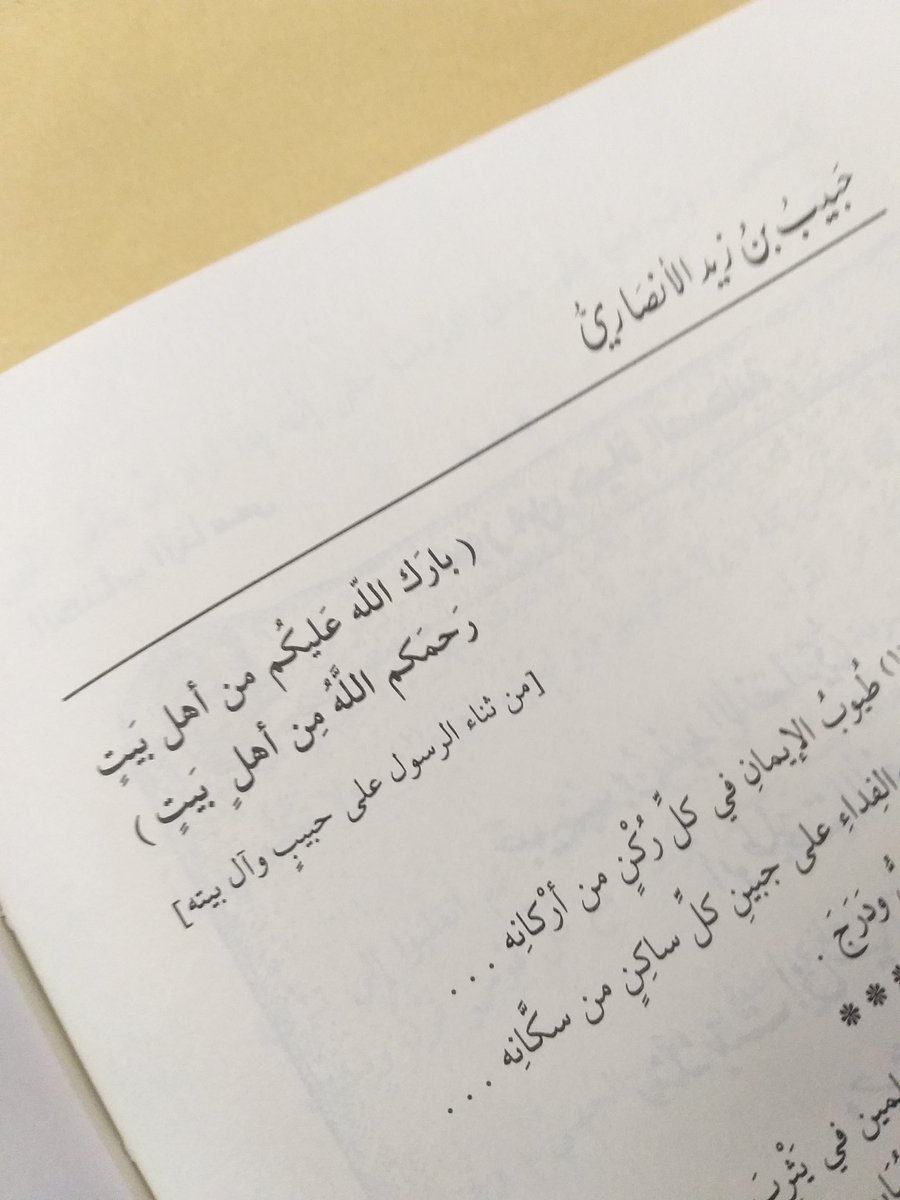 حَبِيبُ بنُ زَيد الأنصَاريُّ
(بارَك اللّه عَليكُم من أهل بَيتٍ
رَحمَكم اللَّهُ مِن أهلِ بَيَتٍ)
[من ثناء الرسول على حبيبٍ وآل بيته]
طُيوبُ الإيمانِ في كلِّ رُكْنٍ من أرْكانِه . . .
الفِداءِ على جبينِ كلِّ ساكِنٍ من سكَّانِه . . .
وَدَرَجَ .
***
في يَثْرِبَ